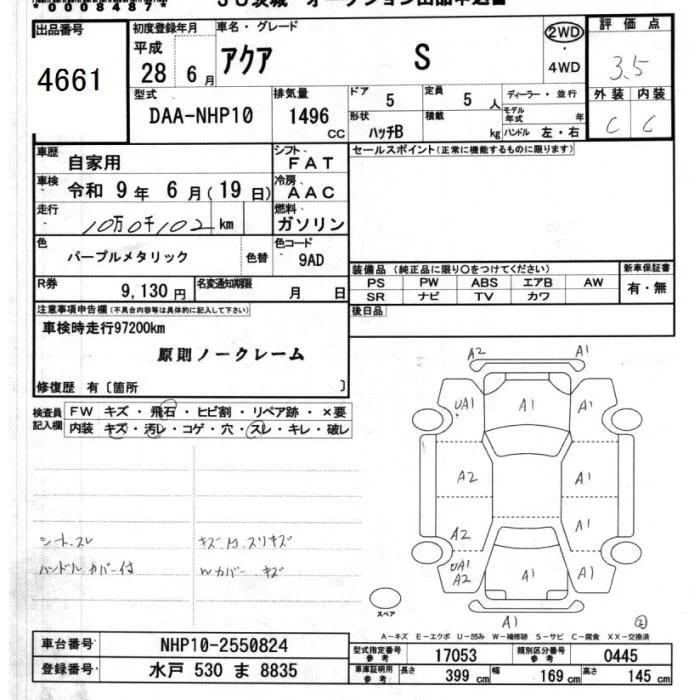 *0008487*
JU茨城 オークション出品申込書
出品番号
4661
初度登録年月
平成
28 年 6 月
車名・グレード
アクア S
2WD
・
4WD
評価点
3.5
外装 内装
C C
型式
DAA-NHP10
排気量
1496 CC
ドア 5
定員 5 人
形状 ハッチB
積載 kg
ディーラー・並行
モデル年式 年
ハンドル 左・右
車歴 自家用
シフト FAT
車検 令和 9 年 6 月 (19 日)
冷房 AAC
走行 10万0千102 km
燃料 ガソリン
色 パープルメタリック 色替
色コード 9AD
R券 9,130 円
名変通知期限 月 日
セールスポイント(正常に機能するものに限ります)
装備品 (純正品に限り○をつけてください)
PS PW ABS エアB AW
SR ナビ TV カワ
新車保証書
有・無
後日品
注意事項申告欄 (不具合内容等は具体的に記入して下さい)
車検時走行97200km
原則ノークレーム
修復歴 有〔箇所 〕
検査員記入欄
FW キズ・飛石・ヒビ割・リペア跡・×要
内装 キズ・汚レ・コゲ・穴・スレ・キレ・破レ
シート スレ
ハンドルカバー付
Wカバー キズ
A2 A1
UA1 A1 A1
A2 A1
A2 A1
UA1
A2 A1 A1
A1
スペア
②
A-キズ E-エクボ U-凹み W-補修跡 S-サビ C-腐食 XX-交換済
車台番号 NHP10-2550824
登録番号 水戸 530 ま 8835
型式指定番号 参考 17053
類別区分番号 参考 0445
車庫証明用 参考 長さ 399 cm 幅 169 cm 高さ 145 cm